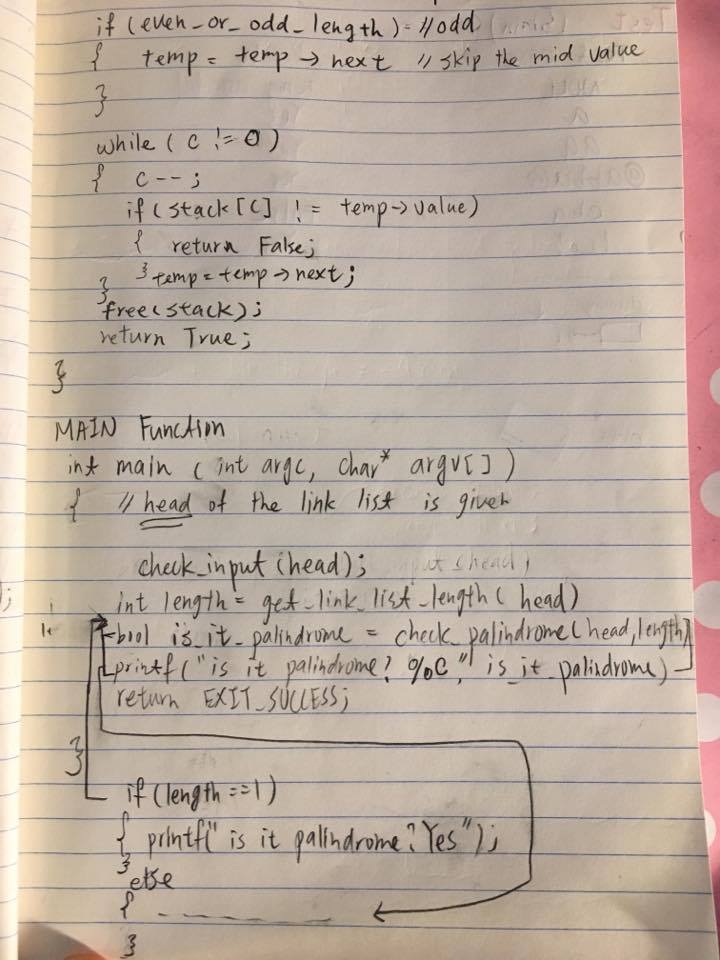 if (even_or_odd_length) //odd
{ temp = temp → next // skip the mid value
}
while ( c != 0 )
{ c--;
if (stack[c] != temp → value)
{ return False;
} temp = temp → next;
}
free(stack);
return True;
}
MAIN Function
int main ( int argc, char* argv[] )
{ // head of the link list is given
check_input (head);
int length = get_link_list_length( head)
bool is_it_palindrome = check_palindrome(head, length)
printf("is it palindrome? %c," is_it_palindrome)
return EXIT_SUCCESS;
}
if (length ==1)
{ printf(" is it palindrome? Yes");
}
else
{ _ _ _ _ _ _ _ _
}